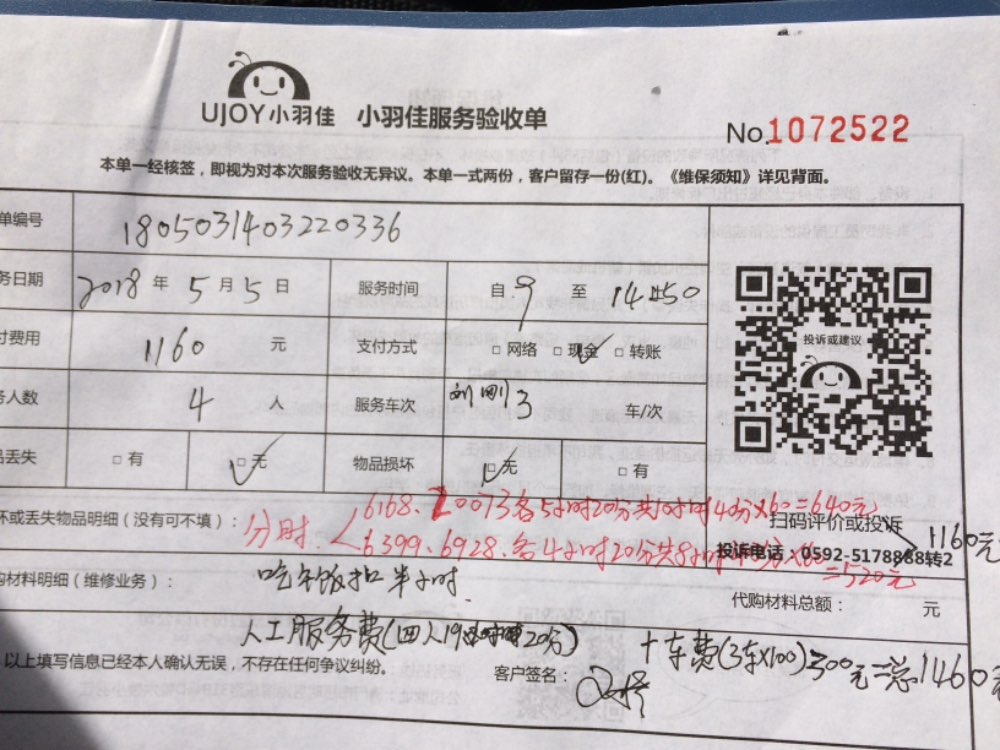 UJOY小羽佳 小羽佳服务验收单
No.1072522
本单一经核签，即视为对本次服务验收无异议。本单一式两份，客户留存一份(红)。《维保须知》详见背面。
单编号 1805031403220336
务日期 2018 年 5 月 5 日 服务时间 自 9 至 14:50
付费用 1160 元 支付方式 □网络 □现金 □转账
务人数 4 人 服务车次 3 车/次
品丢失 □有 □无 物品损坏 □无 □有
投诉或建议
坏或丢失物品明细（没有可不填）：
分时 6168、20073各5小时20分共10小时40分×60=640元
6399、6928、各4小时20分共8小时 =520元
扫码评价或投诉
投诉电话：0592-5178888转2
1160元
购材料明细（维修业务）： 吃午饭扣半小时
代购材料总额： 元
人工服务费(四人19小时20分)
十车费(3车×100)300元=总1460
以上填写信息已经本人确认无误，不存在任何争议纠纷。 客户签名：